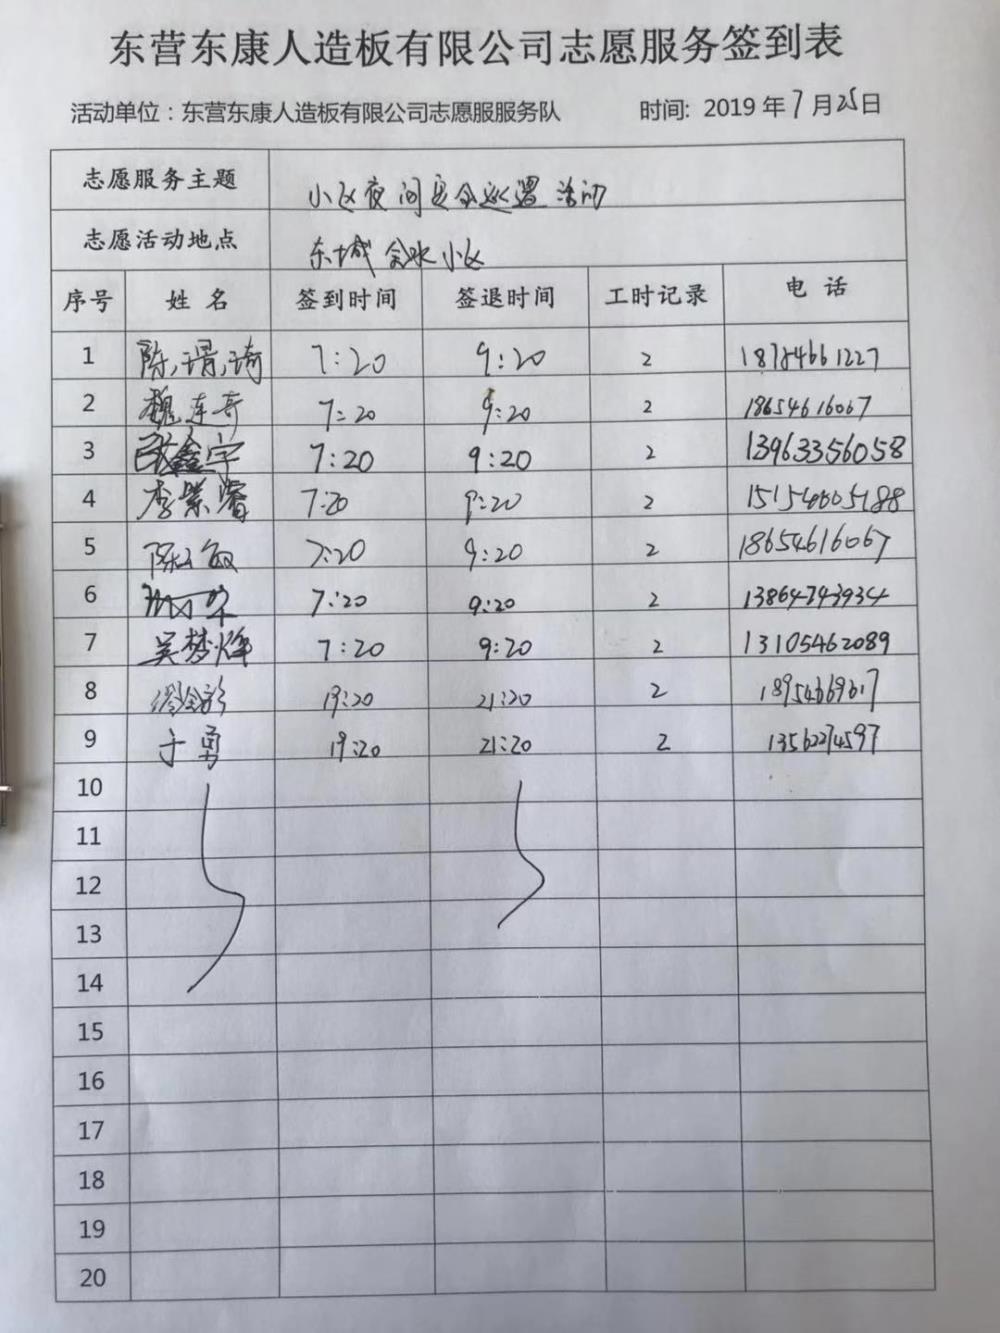 东营东康人造板有限公司志愿服务签到表
活动单位：东营东康人造板有限公司志愿服服务队 时间: 2019 年 7 月 25 日
志愿服务主题 小区夜间安全巡逻活动
志愿活动地点 东城 小区
序号 姓名 签到时间 签退时间 工时记录 电话
1 7:20 9:20 2 18784661227
2 魏连奇 7:20 9:20 2 18654616067
3 鑫宇 7:20 9:20 2 13963356058
4 李紫睿 7:20 9:20 2 15154605188
5 陈 敏 7:20 9:20 2 18654616067
6 7:20 9:20 2 13864743934
7 吴梦烽 7:20 9:20 2 13105462089
8 19:20 21:20 2 18954669617
9 于勇 19:20 21:20 2 13562274597
10
11
12
13
14
15
16
17
18
19
20